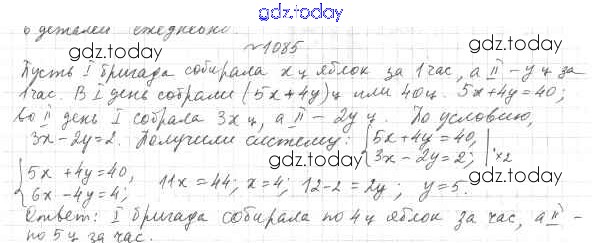 gdz.today
6 деталей ежедневно.
gdz.today
№1085
Пусть I бригада собирала x ц яблок за 1 час, а II – y ц за
1 час. В I день собрали (5x+4y) ц или 40 ц. 5x+4y=40;
gdz.today gdz.today
во II день I собрала 3x ц, а II – 2y ц. По условию,
3x-2y=2. Получили систему: { 5x+4y=40, 3x-2y=2; | ×2
gdz.today
{ 5x+4y=40, 6x-4y=4; 11x=44; x=4; 12-2=2y; y=5.
gdz.today gdz.today
Ответ: I бригада собирала по 4 ц яблок за час, а II –
по 5 ц за час.
gdz.today